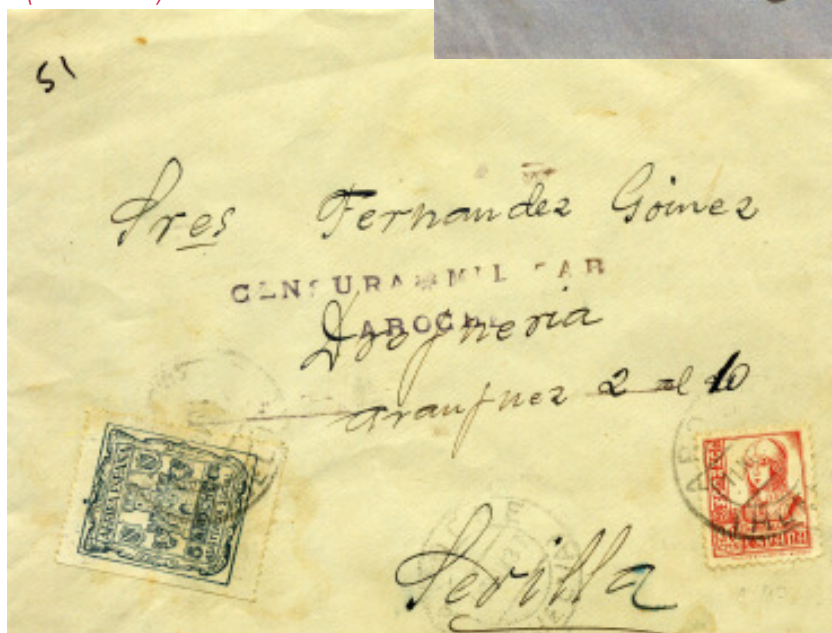 51
Sres Fernandez Gómez
CENSURA MILITAR
AROCHE
Drogueria
Aranjuez 2 al 10
Sevilla